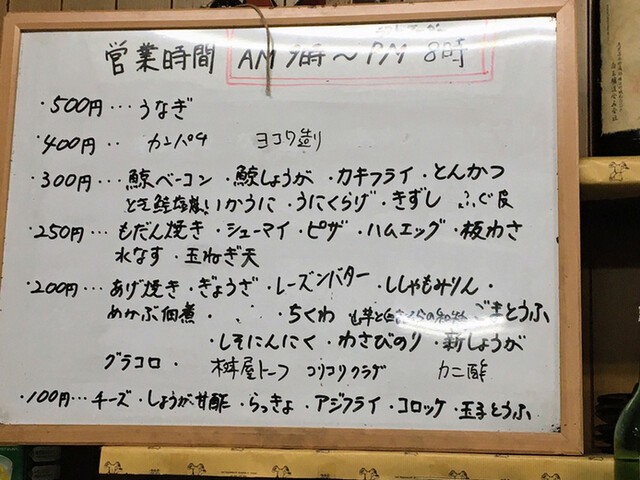 営業時間 AM 9時〜PM 8時
・500円…うなぎ
・400円‥ カンパチ ヨコワ造り
・300円…鯨ベーコン ・鯨しょうが ・カキフライ ・とんかつ
いかうに ・うにくらげ ・きずし ふぐ皮
・250円…もだん焼き ・シューマイ ・ピザ ・ハムエッグ ・板わさ
水なす ・玉ねぎ天
・200円…あげ焼き ・ぎょうざ ・レーズンバター ・ししゃもみりん ・
めかぶ佃煮 ・ ・ ・ちくわ ごまとうふ
・しそにんにく ・わさびのり ・新しょうが
グラコロ ・ 桝屋トーフ コリコリクラゲ カニ酢
・100円…チーズ ・しょうが甘酢 ・らっきょ ・アジフライ ・コロッケ ・玉子とうふ